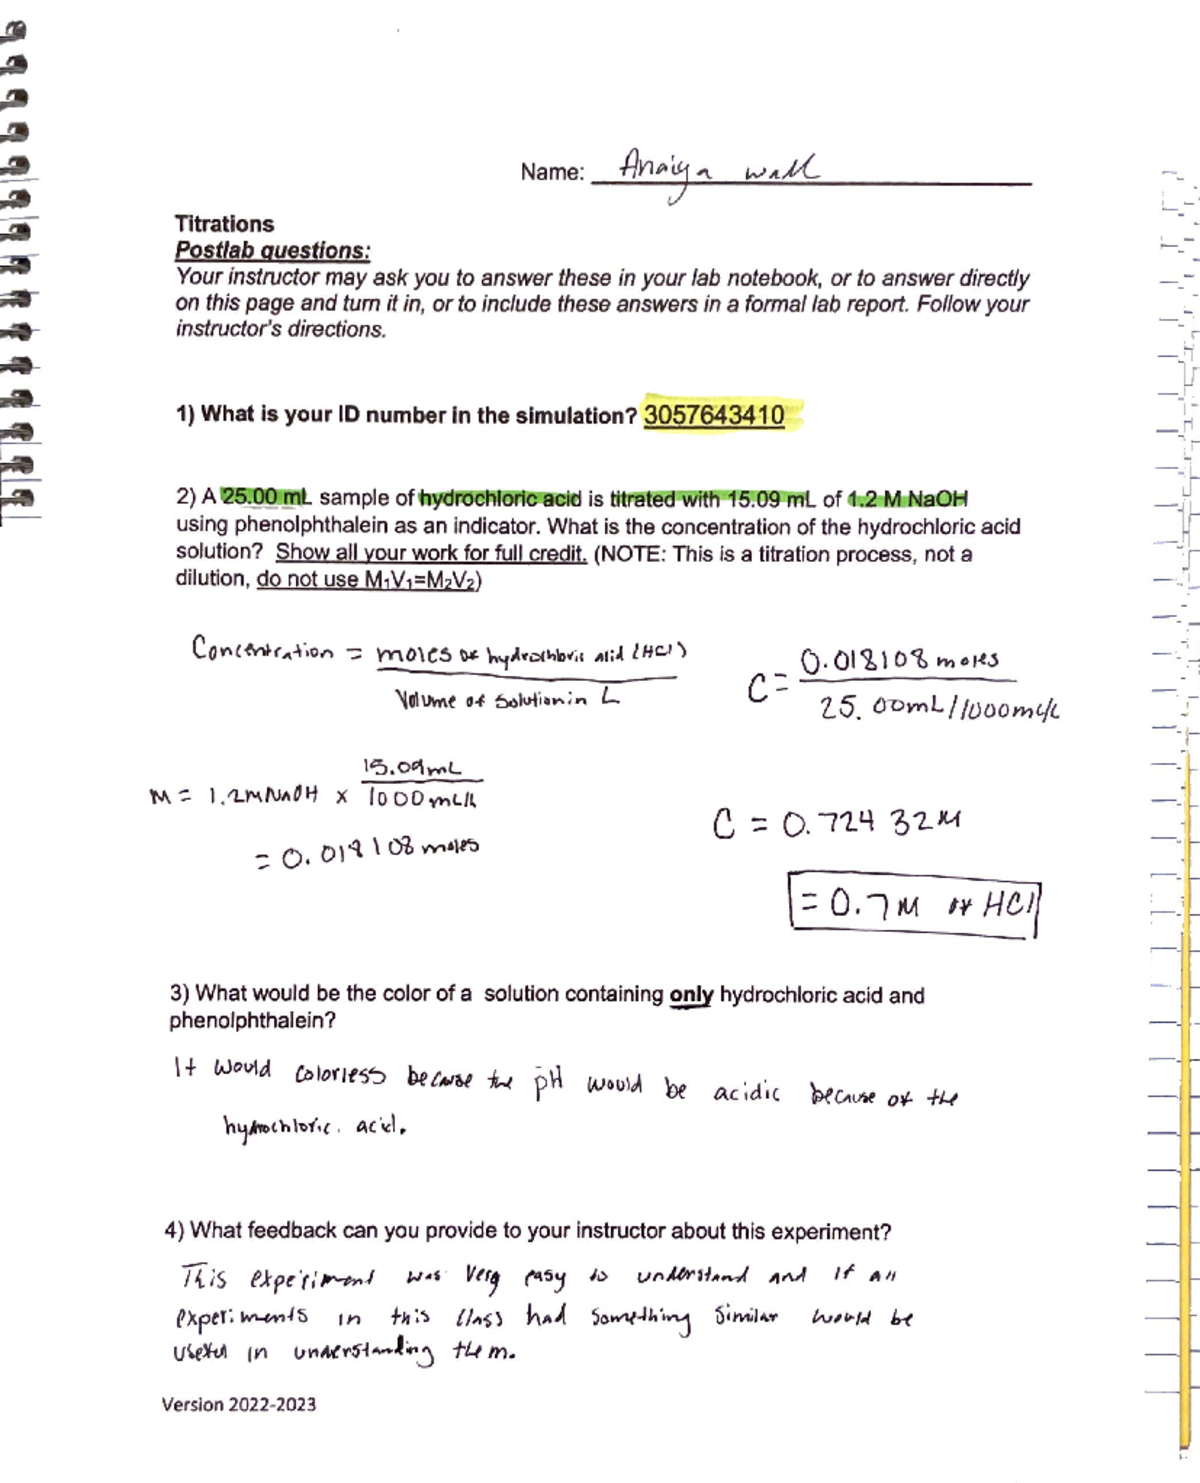 Name: Anaiya wall
Titrations
Postlab questions:
Your instructor may ask you to answer these in your lab notebook, or to answer directly
on this page and turn it in, or to include these answers in a formal lab report. Follow your
instructor's directions.
1) What is your ID number in the simulation? 3057643410
2) A 25.00 mL sample of hydrochloric acid is titrated with 15.09 mL of 1.2 M NaOH
using phenolphthalein as an indicator. What is the concentration of the hydrochloric acid
solution? Show all your work for full credit. (NOTE: This is a titration process, not a
dilution, do not use M₁V₁=M₂V₂)
Concentration = moles of hydrochloric acid (HCl)
Volume of solution in L
C = 0.018108 moles
25.00mL/1000mL/L
M = 1.2M NaOH x 15.09mL
1000mL/L
= 0.018108 moles
C = 0.72432M
= 0.7M of HCl
3) What would be the color of a solution containing only hydrochloric acid and
phenolphthalein?
It would colorless because the pH would be acidic because of the
hydrochloric. acid.
4) What feedback can you provide to your instructor about this experiment?
This experiment was very easy to understand and if all
experiments in this class had something similar would be
useful in understanding them.
Version 2022-2023